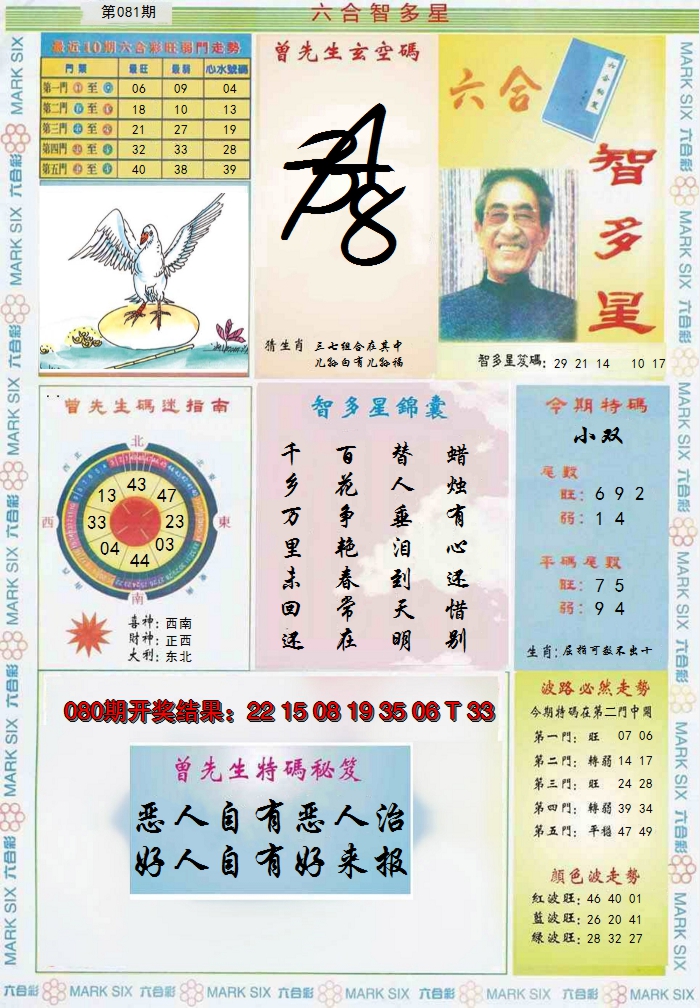 第081期
六合智多星
最近10期六合彩旺弱門走勢
門類 最旺 最弱 心水號碼
第一門 ① 至 ⑨ 06 09 04
第二門 至 18 10 13
第三門 至 21 27 19
第四門 至 32 33 28
第五門 至 40 38 39
曾先生玄空碼
猜生肖 三七組合在其中
儿孙自有儿孙福
六合
智多星
智多星笈碼: 29 21 14 10 17
曾先生碼迷指南
北
東
南
西
43
47
23
03
44
04
33
13
喜神: 西南
財神: 正西
大利: 东北
智多星錦囊
蜡烛有心还惜别
替人垂泪到天明
百花争艳春常在
千乡万里未回还
今期特碼
小双
尾數
旺: 6 9 2
弱: 1 4
平碼尾數
旺: 7 5
弱: 9 4
生肖: 屈指可数不出十
080期开奖结果: 22 15 08 19 35 06 T 33
曾先生特碼秘笈
恶人自有恶人治
好人自有好来报
波路必然走勢
今期特碼在第二門中開
第一門: 旺 07 06
第二門: 轉弱 14 17
第三門: 旺 24 28
第四門: 轉弱 39 34
第五門: 平穩 47 49
顏色波走勢
紅波旺: 46 40 01
藍波旺: 26 20 41
綠波旺: 28 32 27
六合彩 MARK SIX 六合彩 MARK SIX 六合彩 MARK SIX 六合彩 MARK SIX 六合彩